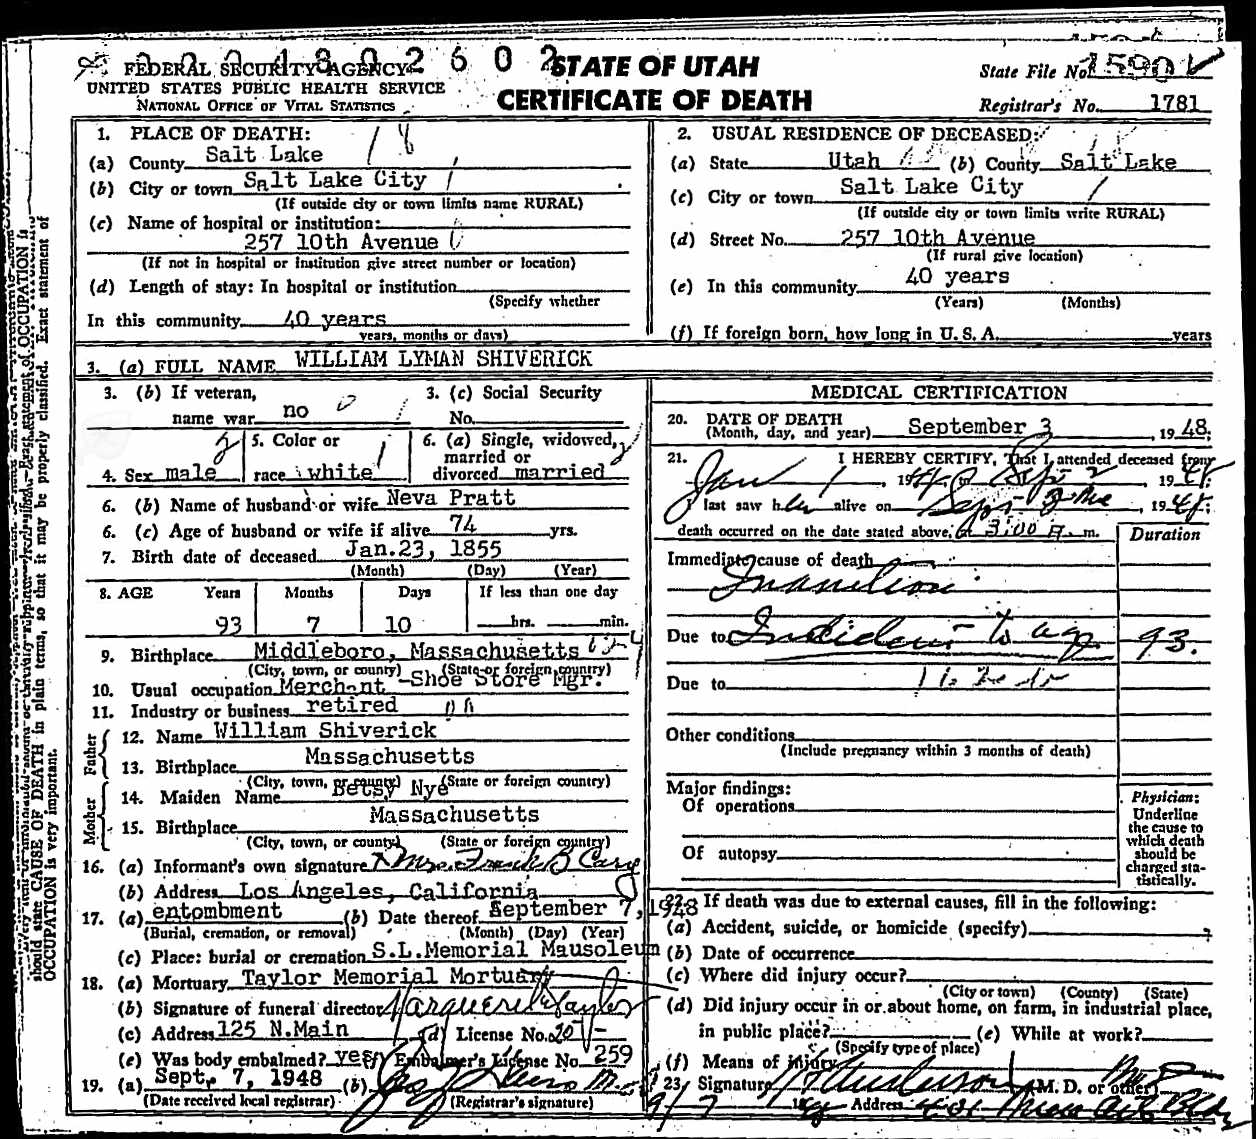 FEDERAL SECURITY AGENCY
UNITED STATES PUBLIC HEALTH SERVICE
NATIONAL OFFICE OF VITAL STATISTICS
STATE OF UTAH
CERTIFICATE OF DEATH
State File No.
Registrar's No. 1781
1. PLACE OF DEATH:
(a) County Salt Lake
(b) City or town Salt Lake City
(If outside city or town limits name RURAL)
(c) Name of hospital or institution:
257 10th Avenue
(If not in hospital or institution give street number or location)
(d) Length of stay: In hospital or institution
(Specify whether
In this community 40 years
years, months or days)
2. USUAL RESIDENCE OF DECEASED:
(a) State Utah (b) County Salt Lake
(c) City or town Salt Lake City
(If outside city or town limits write RURAL)
(d) Street No. 257 10th Avenue
(If rural give location)
(e) In this community 40 years
(Years) (Months)
(f) If foreign born, how long in U. S. A. years
3. (a) FULL NAME WILLIAM LYMAN SHIVERICK
3. (b) If veteran,
name war no
3. (c) Social Security
No.
4. Sex male
5. Color or
race white
6. (a) Single, widowed,
married or
divorced married
6. (b) Name of husband or wife Neva Pratt
6. (c) Age of husband or wife if alive 74 yrs.
7. Birth date of deceased Jan.23, 1855
(Month) (Day) (Year)
8. AGE Years Months Days If less than one day
93 7 10 hrs. min.
9. Birthplace Middleboro, Massachusetts
(City, town, or county) (State or foreign country)
10. Usual occupation Merchant -Shoe Store Mgr.
11. Industry or business retired
Father
12. Name William Shiverick
13. Birthplace Massachusetts
(City, town, or county) (State or foreign country)
Mother
14. Maiden Name Betsy Nye
15. Birthplace Massachusetts
(City, town, or county) (State or foreign country)
16. (a) Informant's own signature Mrs. Frank B Cary
(b) Address Los Angeles, California
17. (a) entombment (b) Date thereof September 7, 1948
(Burial, cremation, or removal) (Month) (Day) (Year)
(c) Place: burial or cremation S.L.Memorial Mausoleum
18. (a) Mortuary Taylor Memorial Mortuary
(b) Signature of funeral director Marguerite Taylor
(c) Address 125 N.Main (d) License No. 205
(e) Was body embalmed? yes (f) Embalmer's License No. 259
19. (a) Sept. 7, 1948 (b)
(Date received local registrar) (Registrar's signature)
MEDICAL CERTIFICATION
20. DATE OF DEATH
(Month, day, and year) September 3, 1948;
21. I HEREBY CERTIFY, That I attended deceased from
Jan 1, 19 to Sept 2 1948;
I last saw h alive on Sept 1948;
death occurred on the date stated above, at 3:00 A. m.
Duration
Immediate cause of death
Inanition
Due to Incident to age 93.
Due to
Other conditions
(Include pregnancy within 3 months of death)
Major findings:
Of operations
Of autopsy
Physician:
Underline
the cause to
which death
should be
charged sta-
tistically.
22. If death was due to external causes, fill in the following:
(a) Accident, suicide, or homicide (specify)
(b) Date of occurrence
(c) Where did injury occur?
(City or town) (County) (State)
(d) Did injury occur in or about home, on farm, in industrial place,
in public place? (e) While at work?
(Specify type of place)
(f) Means of injury
23. Signature (M. D. or other)
9/7 Address
should state CAUSE OF DEATH in plain terms, so that it may be properly classified. Exact statement of
OCCUPATION is very important.